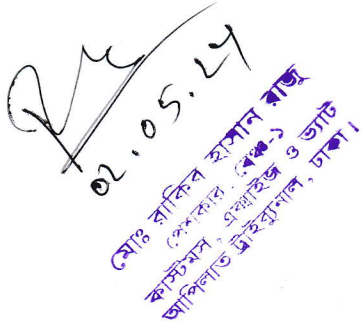 02.05.24
মোঃ রাকিব হাসান রাজু
পেশকার, বেঞ্চ-১
কাস্টমস, এক্সাইজ ও ভ্যাট
আপিলাত ট্রাইব্যুনাল, ঢাকা।